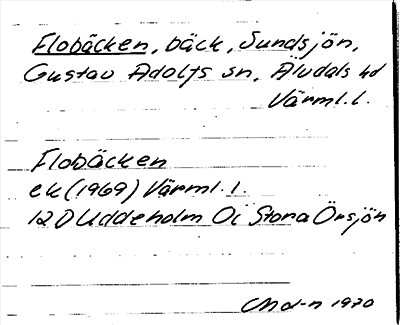 Flobäcken, bäck, Sundsjön,
Gustav Adolfs sn, Älvdals hd
Värml. l.
Flobäcken
ek (1969) Värml. l.
12 D Uddeholm Oi Stora Örsjön
CMd-n 1970